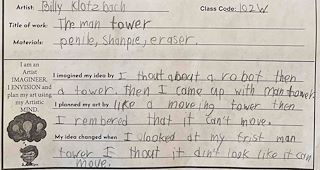 Artist: Billy Klotzbach Class Code: 102W
Title of work: The man tower
Materials: penile, Sharpie, eraser.
I am an
Artist
IMAGINEER.
I ENVISION and
plan my art using
my Artistic
MIND.
I imagined my idea by I thout about a robot then
a tower. then I came up with man tower.
I planned my art by like a moveing tower then
I rembered that it can't move.
My idea changed when I looked at my frist man
tower I thout it din't look like it can
move.